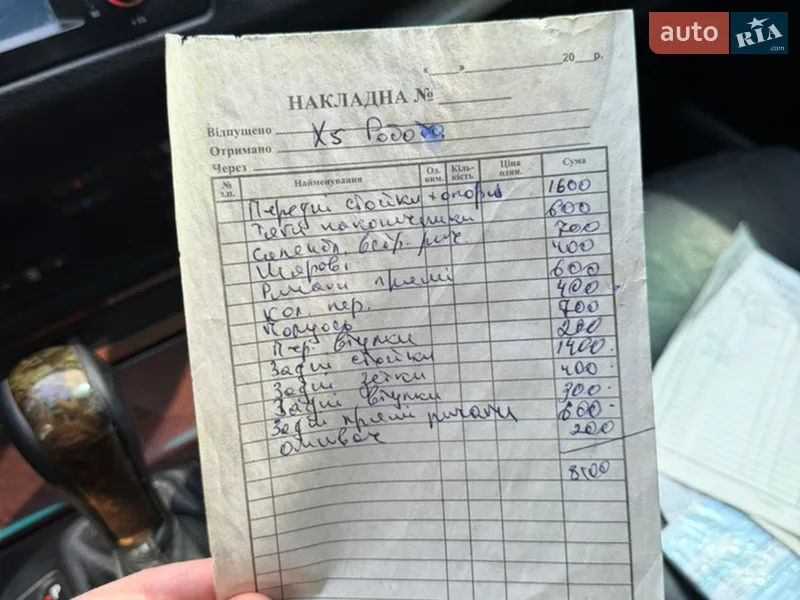 auto RIA .com
«____»____________20___р.
НАКЛАДНА №
Відпущено X5 Робота
Отримано
Через
№ з.п. Найменування Од. вим. Кіль- кість Ціна один. Сума
Передні стойки + опори 1600
Тяги наконечники 600
сайлентбл. вейр. рич. 700
Шарові 400
Ричаги прямі 600
кол. пер. 400
Полуось 700
Пер. втулки 200
Задні стойки 1400
Задні 400
Задні втулки 300
Задні прямі ричаги 600
Омивач 200
8100